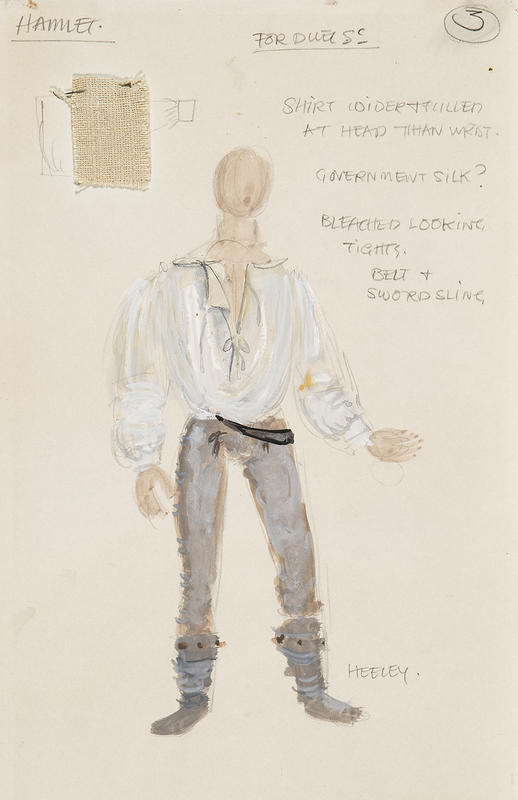 HAMLET.
FOR DUEL SC
3
SHIRT WIDER + FULLER
AT HEAD THAN WRIST.
GOVERNMENT SILK?
BLEACHED LOOKING
TIGHTS.
BELT +
SWORD SLING
HEELEY.